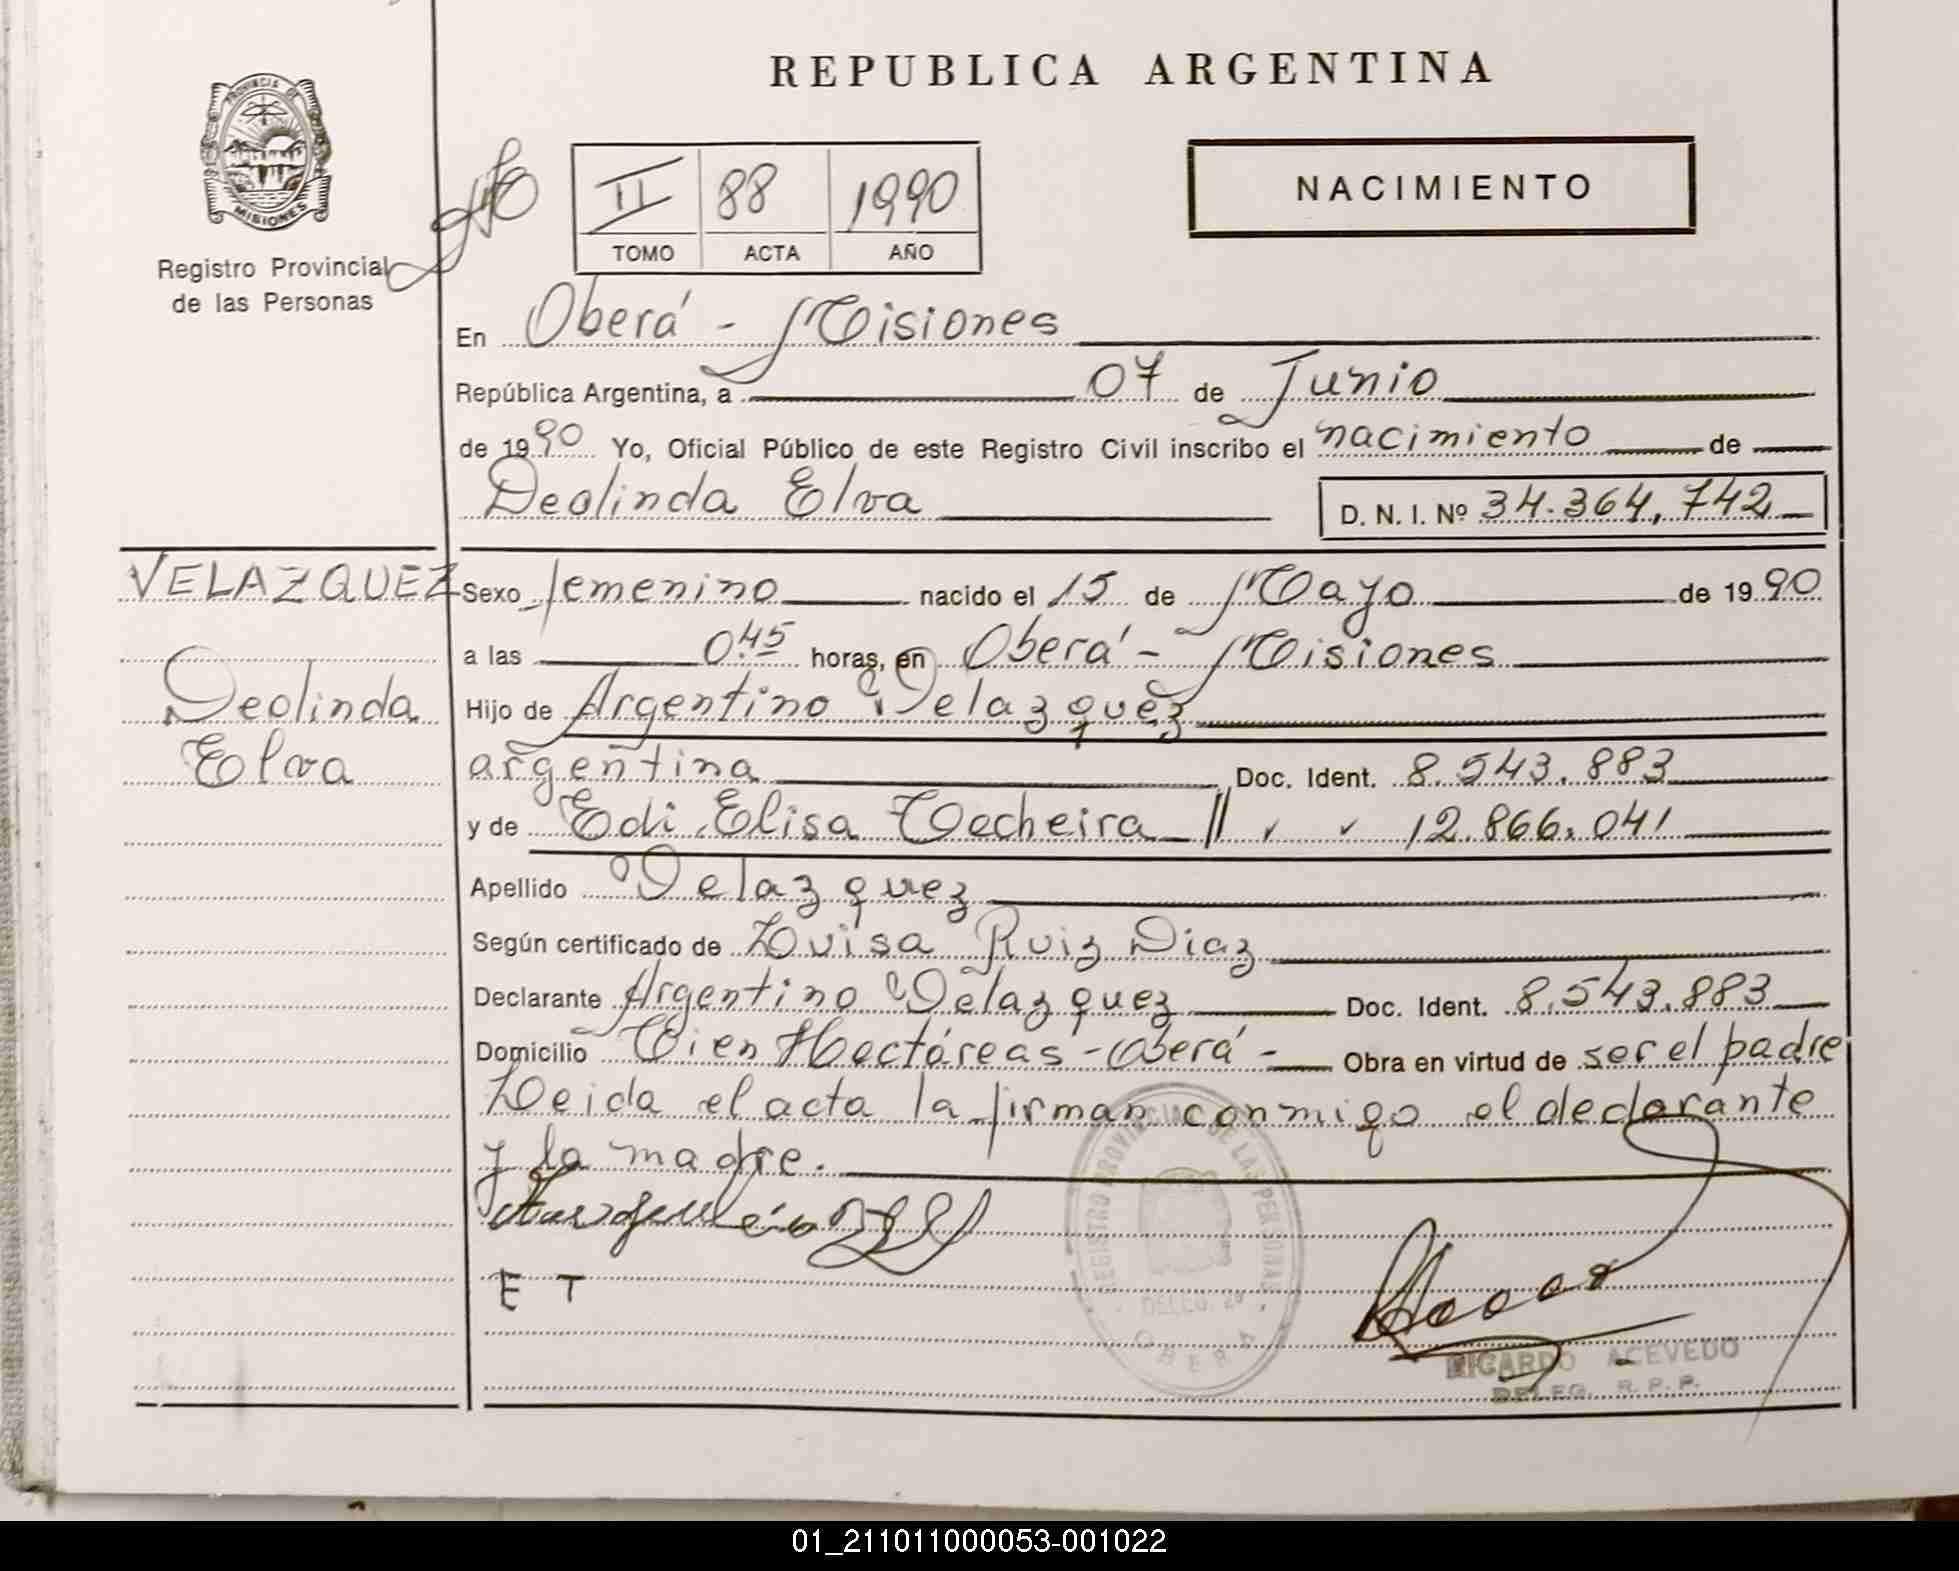 REPUBLICA ARGENTINA
PROVINCIA DE
MISIONES
Registro Provincial
de las Personas
II 88 1990
TOMO ACTA AÑO
NACIMIENTO
En Oberá - Misiones
República Argentina, a 07 de Junio
de 1990 Yo, Oficial Público de este Registro Civil inscribo el nacimiento de
Deolinda Elva D. N. I. Nº 34.364,742
VELAZQUEZ
Deolinda
Elva
Sexo femenino nacido el 15 de Mayo de 1990
a las 0.45 horas, en Oberá - Misiones
Hijo de Argentino Velazquez
argentina Doc. Ident. 8.543.883
y de Edi Elisa 12.866.041
Apellido Velazquez
Según certificado de Luisa Ruiz Diaz
Declarante Argentino Velazquez Doc. Ident. 8.543.883
Domicilio Cien Hectáreas - Oberá - Obra en virtud de ser el padre
Leida el acta la firman conmigo el declarante
y la madre.
E T
REGISTRO PROVINCIAL DE LAS PERSONAS
DELEG. 
OBERA
RICARDO ACEVEDO
DELEG. R. P. P.
01_211011000053-001022